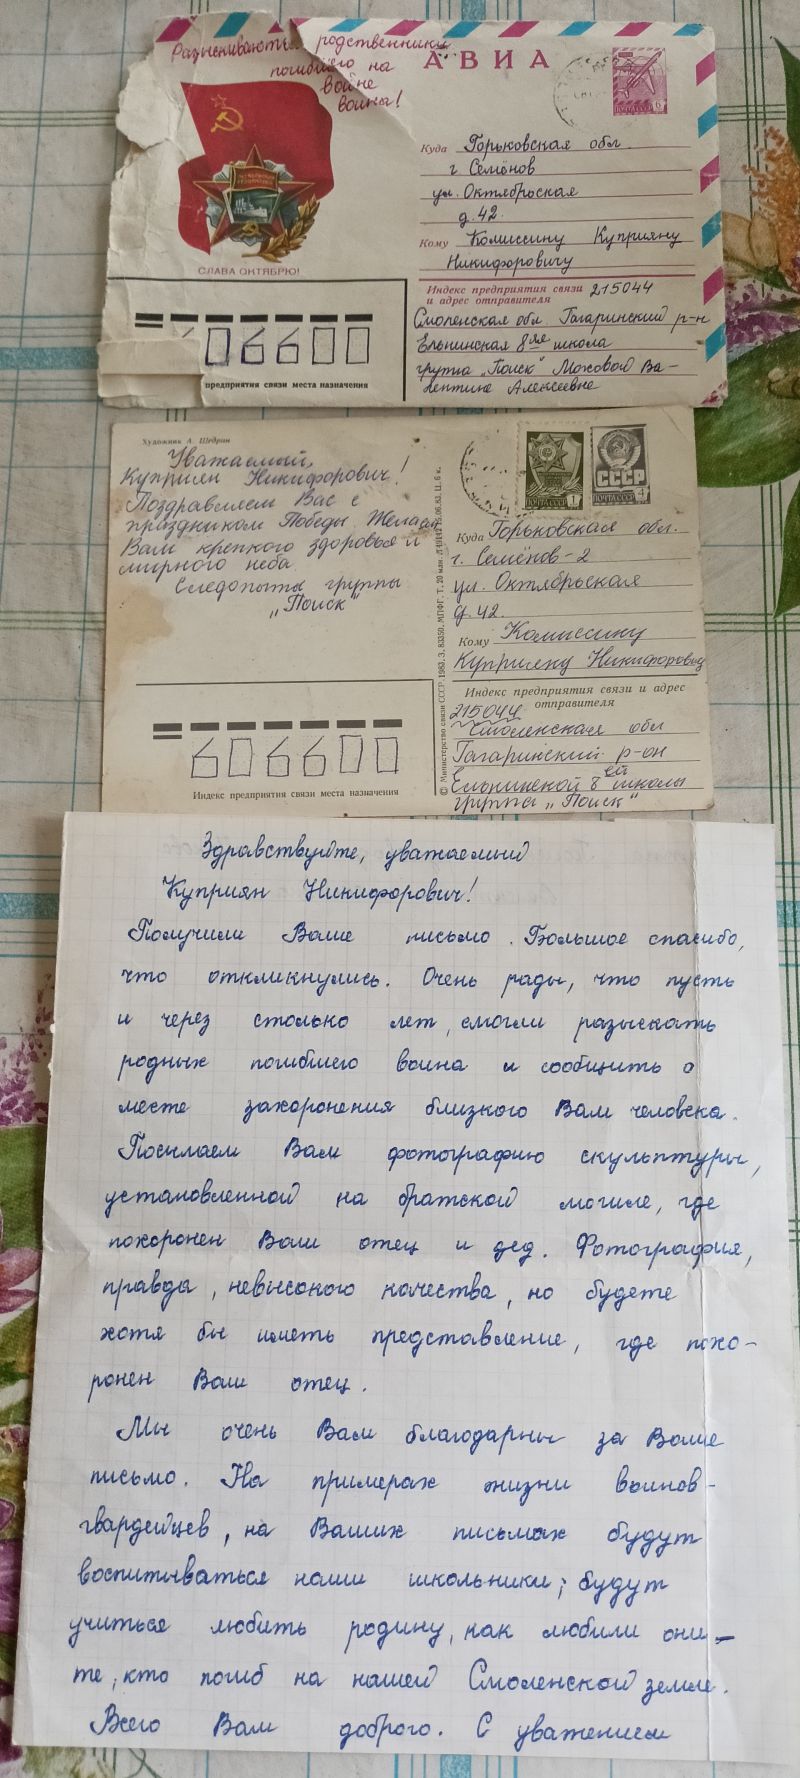 Разыскиваются родственники
погибшего на
войне
воина!
АВИА
ПОЧТА СССР
6
СЛАВА ОКТЯБРЮ!
Куда Горьковская обл.
г Семёнов
ул. Октябрьская
д. 42.
Кому Комиссину Куприяну
Никифоровичу
Индекс предприятия связи 215044
и адрес отправителя
Смоленская обл. Гагаринский р-н
Ельнинская 8ля школа
группа „Поиск" Моховой Ва-
лентине Алексеевне
606600
предприятия связи места назначения
Художник А. Щедрин
Уважаемый,
Куприян Никифорович!
Поздравляем Вас с
праздником Победы. Желаем
Вам крепкого здоровья и
мирного неба.
Следопыты группы
„Поиск"
ПОЧТА СССР 1
СССР
ПОЧТА СССР 4
© Министерство связи СССР. 1983. З. 83350. МПФГ. Т. 20 млн. 06.83. Ц. 6 к.
Куда Горьковская обл.
г. Семёнов-2
ул. Октябрьская
д. 42
Кому Комиссину
Куприяну Никифорович
Индекс предприятия связи и адрес
отправителя
215044
Смоленская обл
Гагаринский р-он
Ельнинской 8ей школы
группа „Поиск"
606600
Индекс предприятия связи места назначения
Здравствуйте, уважаемый
Куприян Никифорович!
Получили Ваше письмо. Большое спасибо,
что откликнулись. Очень рады, что пусть
и через столько лет, смогли разыскать
родных погибшего воина и сообщить о
месте захоронения близкого Вам человека.
Посылаем Вам фотографию скульптуры,
установленной на братской могиле, где
похоронен Ваш отец и дед. Фотография,
правда, невысокого качества, но будете
хотя бы иметь представление, где похо-
ронен Ваш отец.
Мы очень Вам благодарны за Ваше
письмо. На примерах жизни воинов-
гвардейцев, на Ваших письмах будут
воспитываться наши школьники; будут
учиться любить родину, как любили они –
те, кто погиб на нашей Смоленской земле.
Всего Вам доброго. С уважением